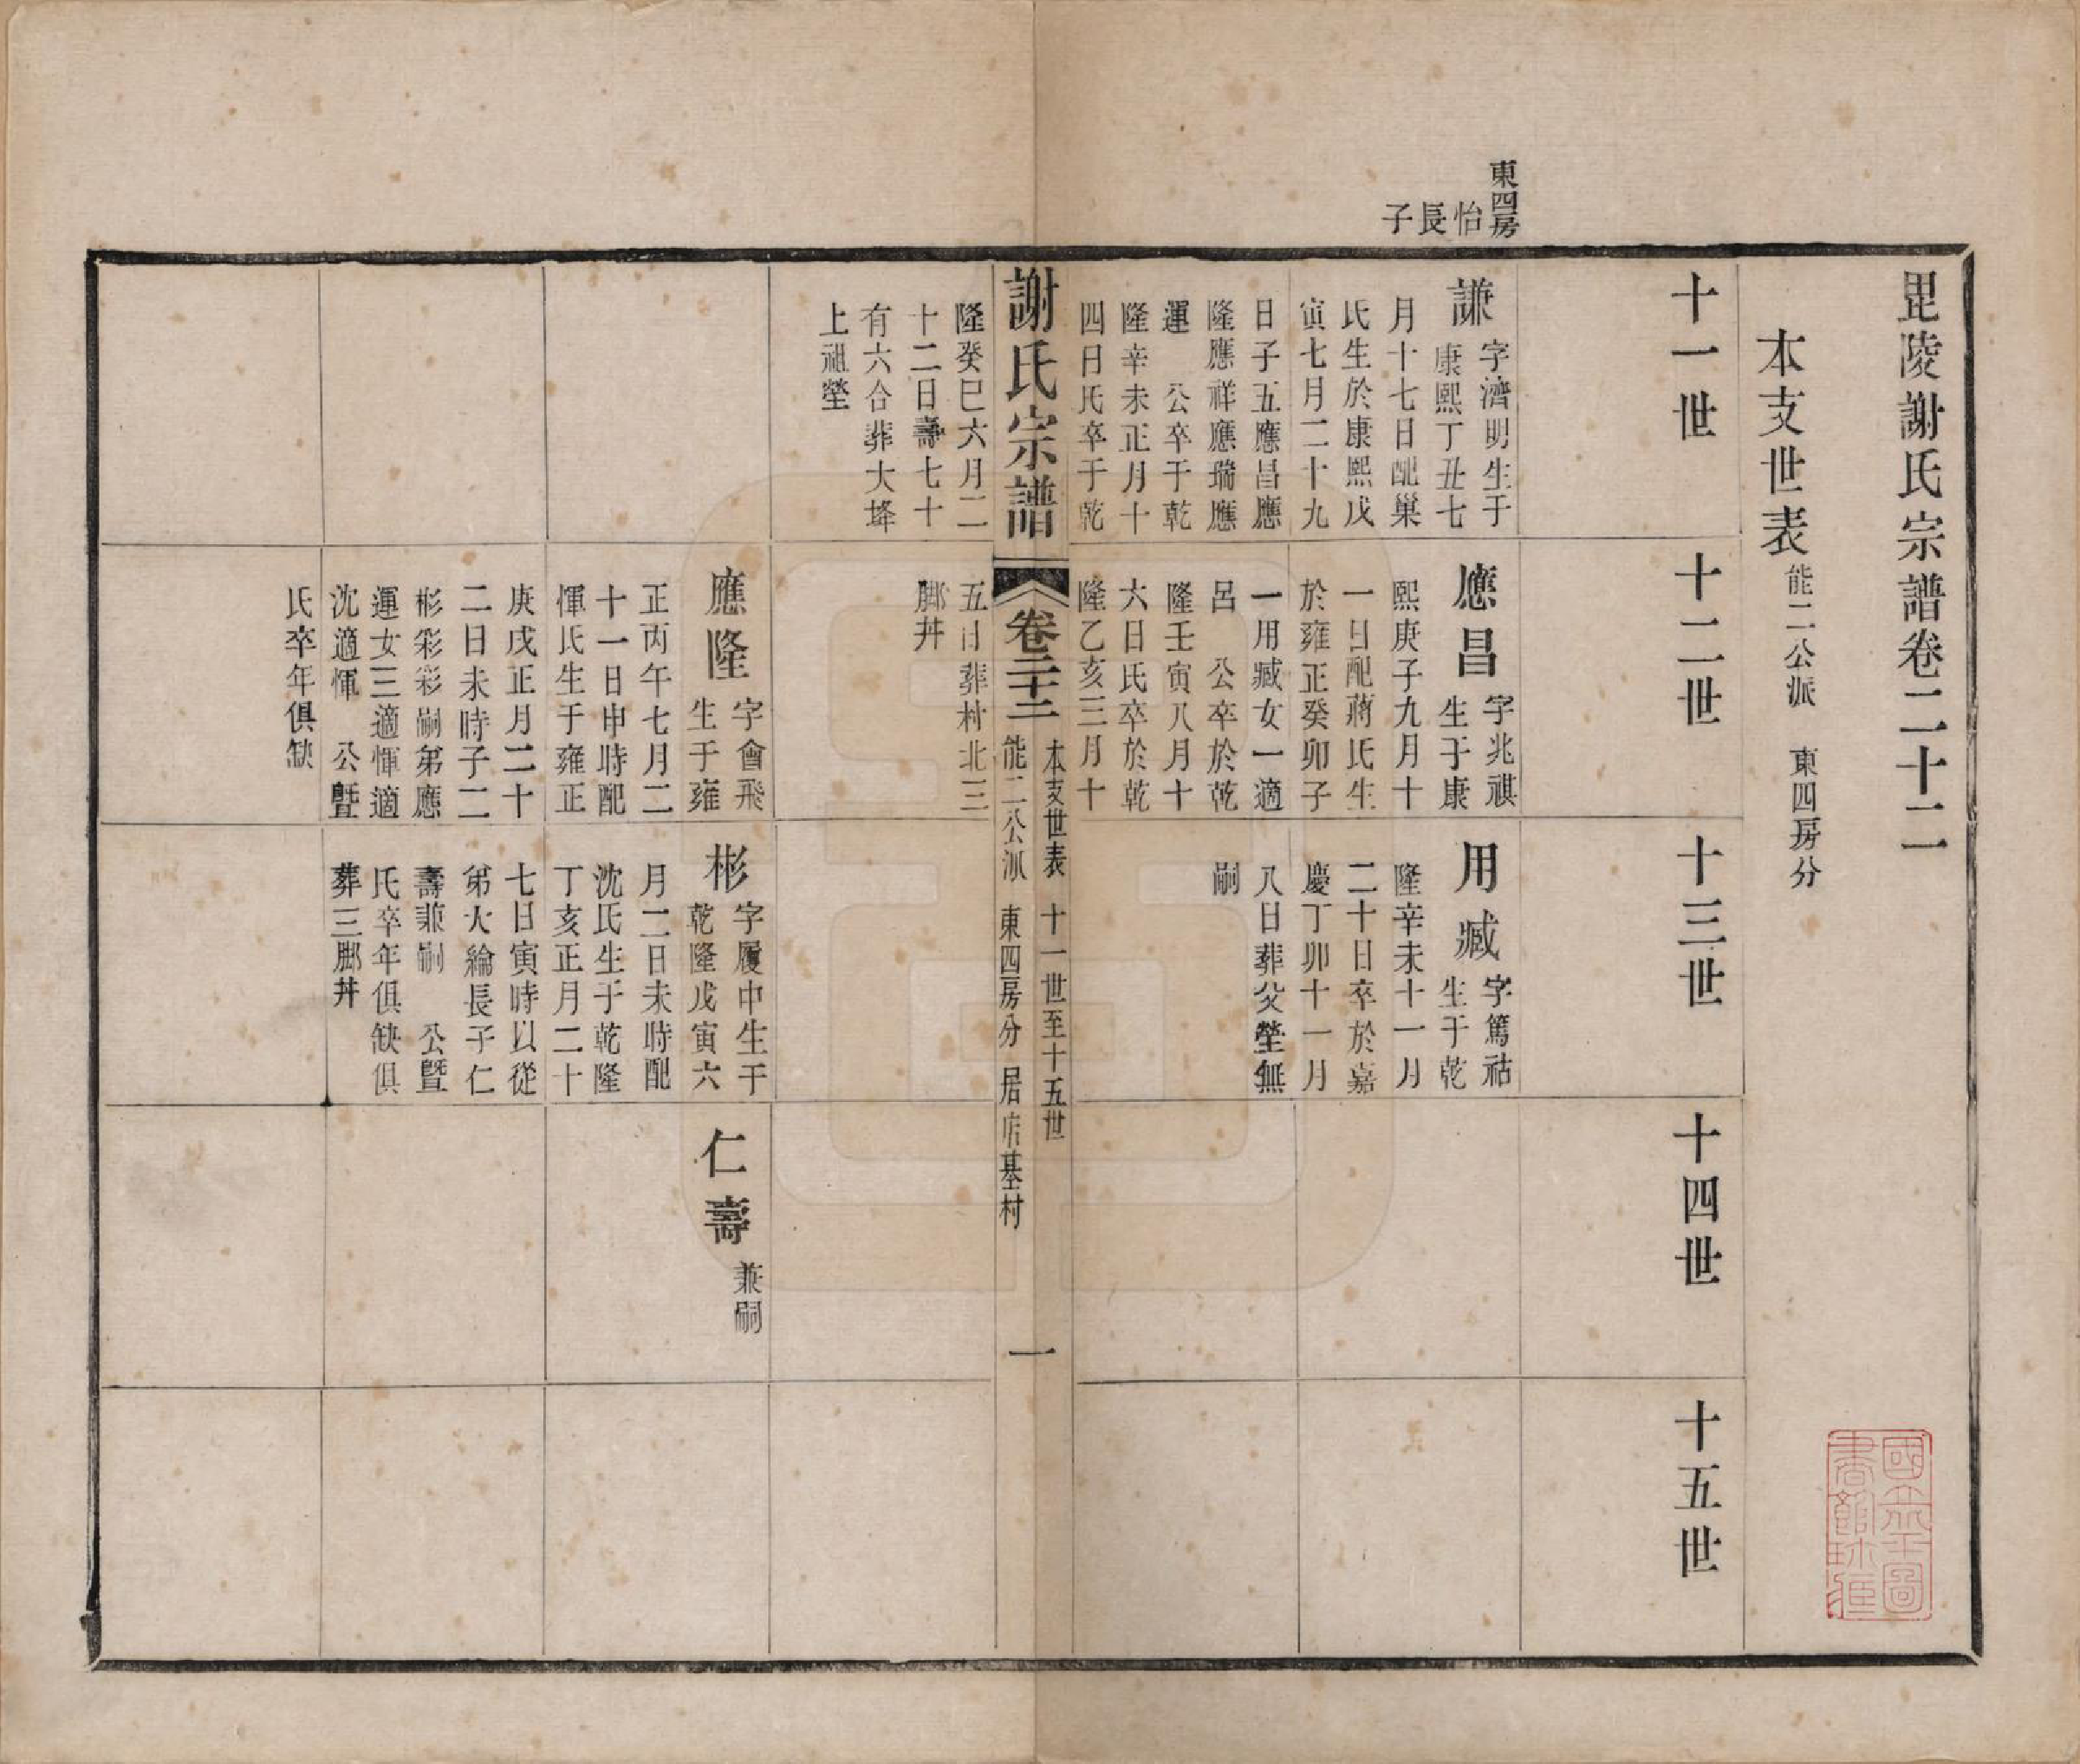 毘陵謝氏宗譜卷二十二
本支世表 能二公派 東四房分
十一世
十二世
十三世
十四世
十五世
東四房
怡長子
謙 字濟明生于
康熙丁丑七
月十七日配巢
氏生於康熙戊
寅七月二十九
日子五應昌應
隆應祥應瑞應
運 公卒于乾
隆辛未正月十
四日氏卒于乾
隆癸巳六月二
十二日壽七十
有六合葬大垾
上祖塋
應昌 字兆祺
生于康
熙庚子九月十
一日配蔣氏生
於雍正癸卯子
一用臧女一適
呂 公卒於乾
隆壬寅八月十
六日氏卒於乾
隆乙亥三月十
五日葬村北三
腳丼
用臧 字篤祜
生于乾
隆辛未十一月
二十日卒於嘉
慶丁卯十一月
八日葬父塋無
嗣
謝氏宗譜 卷二十二 本支世表 十一世至十五世
能二公派 東四房分 居店基村 一
應隆 字會飛
生于雍
正丙午七月二
十一日申時配
惲氏生于雍正
庚戌正月二十
二日未時子二
彬彩彩嗣弟應
運女三適惲適
沈適惲 公暨
氏卒年俱缺
彬 字履中生于
乾隆戊寅六
月二日未時配
沈氏生于乾隆
丁亥正月二十
七日寅時以從
弟大綸長子仁
壽兼嗣 公暨
氏卒年俱缺俱
葬三腳丼
仁壽 兼嗣
國立北平圖
書館珍藏